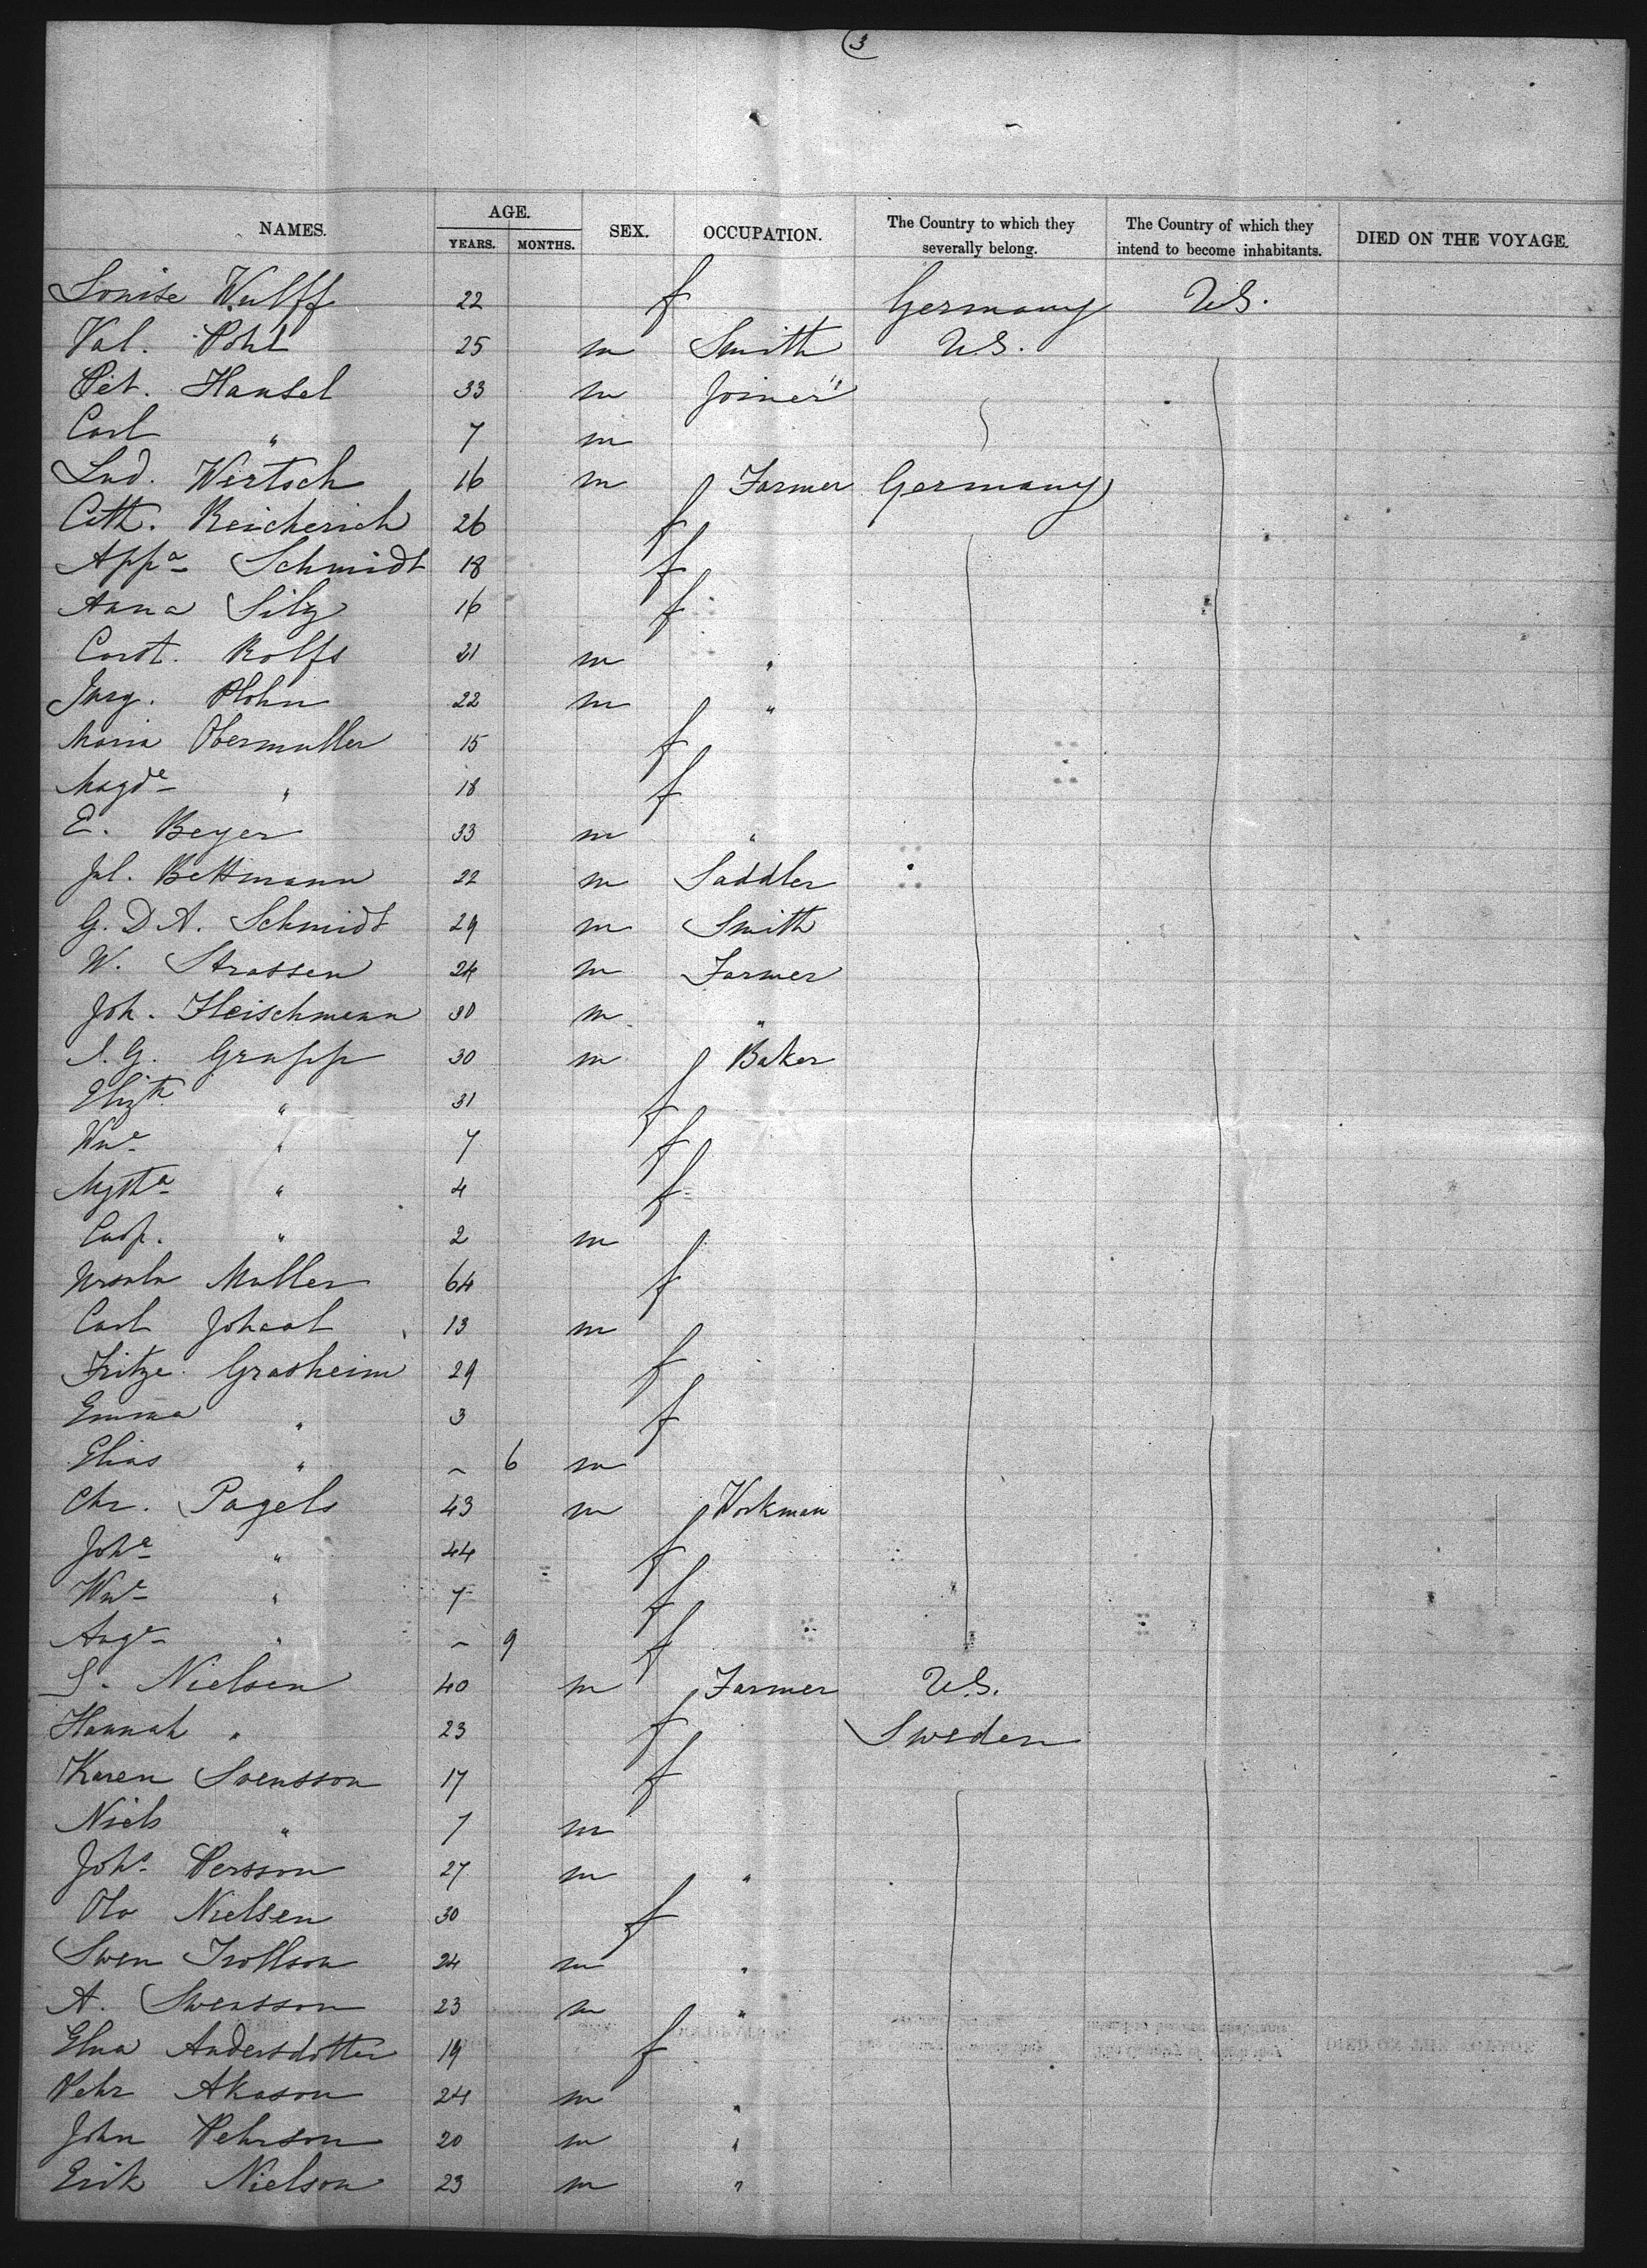 3
NAMES. AGE. YEARS. MONTHS. SEX. OCCUPATION. The Country to which they severally belong. The Country of which they intend to become inhabitants. DIED ON THE VOYAGE.
Louise Wulff 22 f Germany U.S.
Val. Pohl 25 m Smith U.S.
Pet. Hansel 33 m Joiner
Carl " 7 m
Lud. Wertsch 16 m Farmer Germany
Cath. Reicherich 26 f
Appa Schmidt 18 f
Anna Silz 16 f
Carst. Rolfs 21 m "
Jurg. Plohn 22 m "
Maria Obermuller 15 f
Magde " 18 f
E. Beyer 33 m "
Jul. Bettmann 22 m Saddler
G. D. A. Schmidt 29 m Smith
W. Strassen 24 m Farmer
Joh. Fleischmann 30 m "
J. G. Grupp 30 m Baker
Elizth " 31 f
Wme " 7 f
Mgtha " 4 f
Casp. " 2 m
Ursula Muller 64 f
Carl 13 m
Fritze Grasheim 29 f
Emma " 3 f
Elias " - 6 m
Chr. Pagels 43 m Workman
Johe " 44 f
Wme " 7 f
Auge " - 9 f
S. Nielsen 40 m Farmer U.S.
Hannah " 23 f Sweden
Karen Svensson 17 f
Niels " 7 m
Johs Persson 27 m "
Ola Nielsen 30 f
Swen Trollson 24 m "
A. Swensson 23 m "
Elna Andersdotter 19 f
Pehr Akason 24 m "
John Pehrson 20 m "
Erik Nielson 23 m "